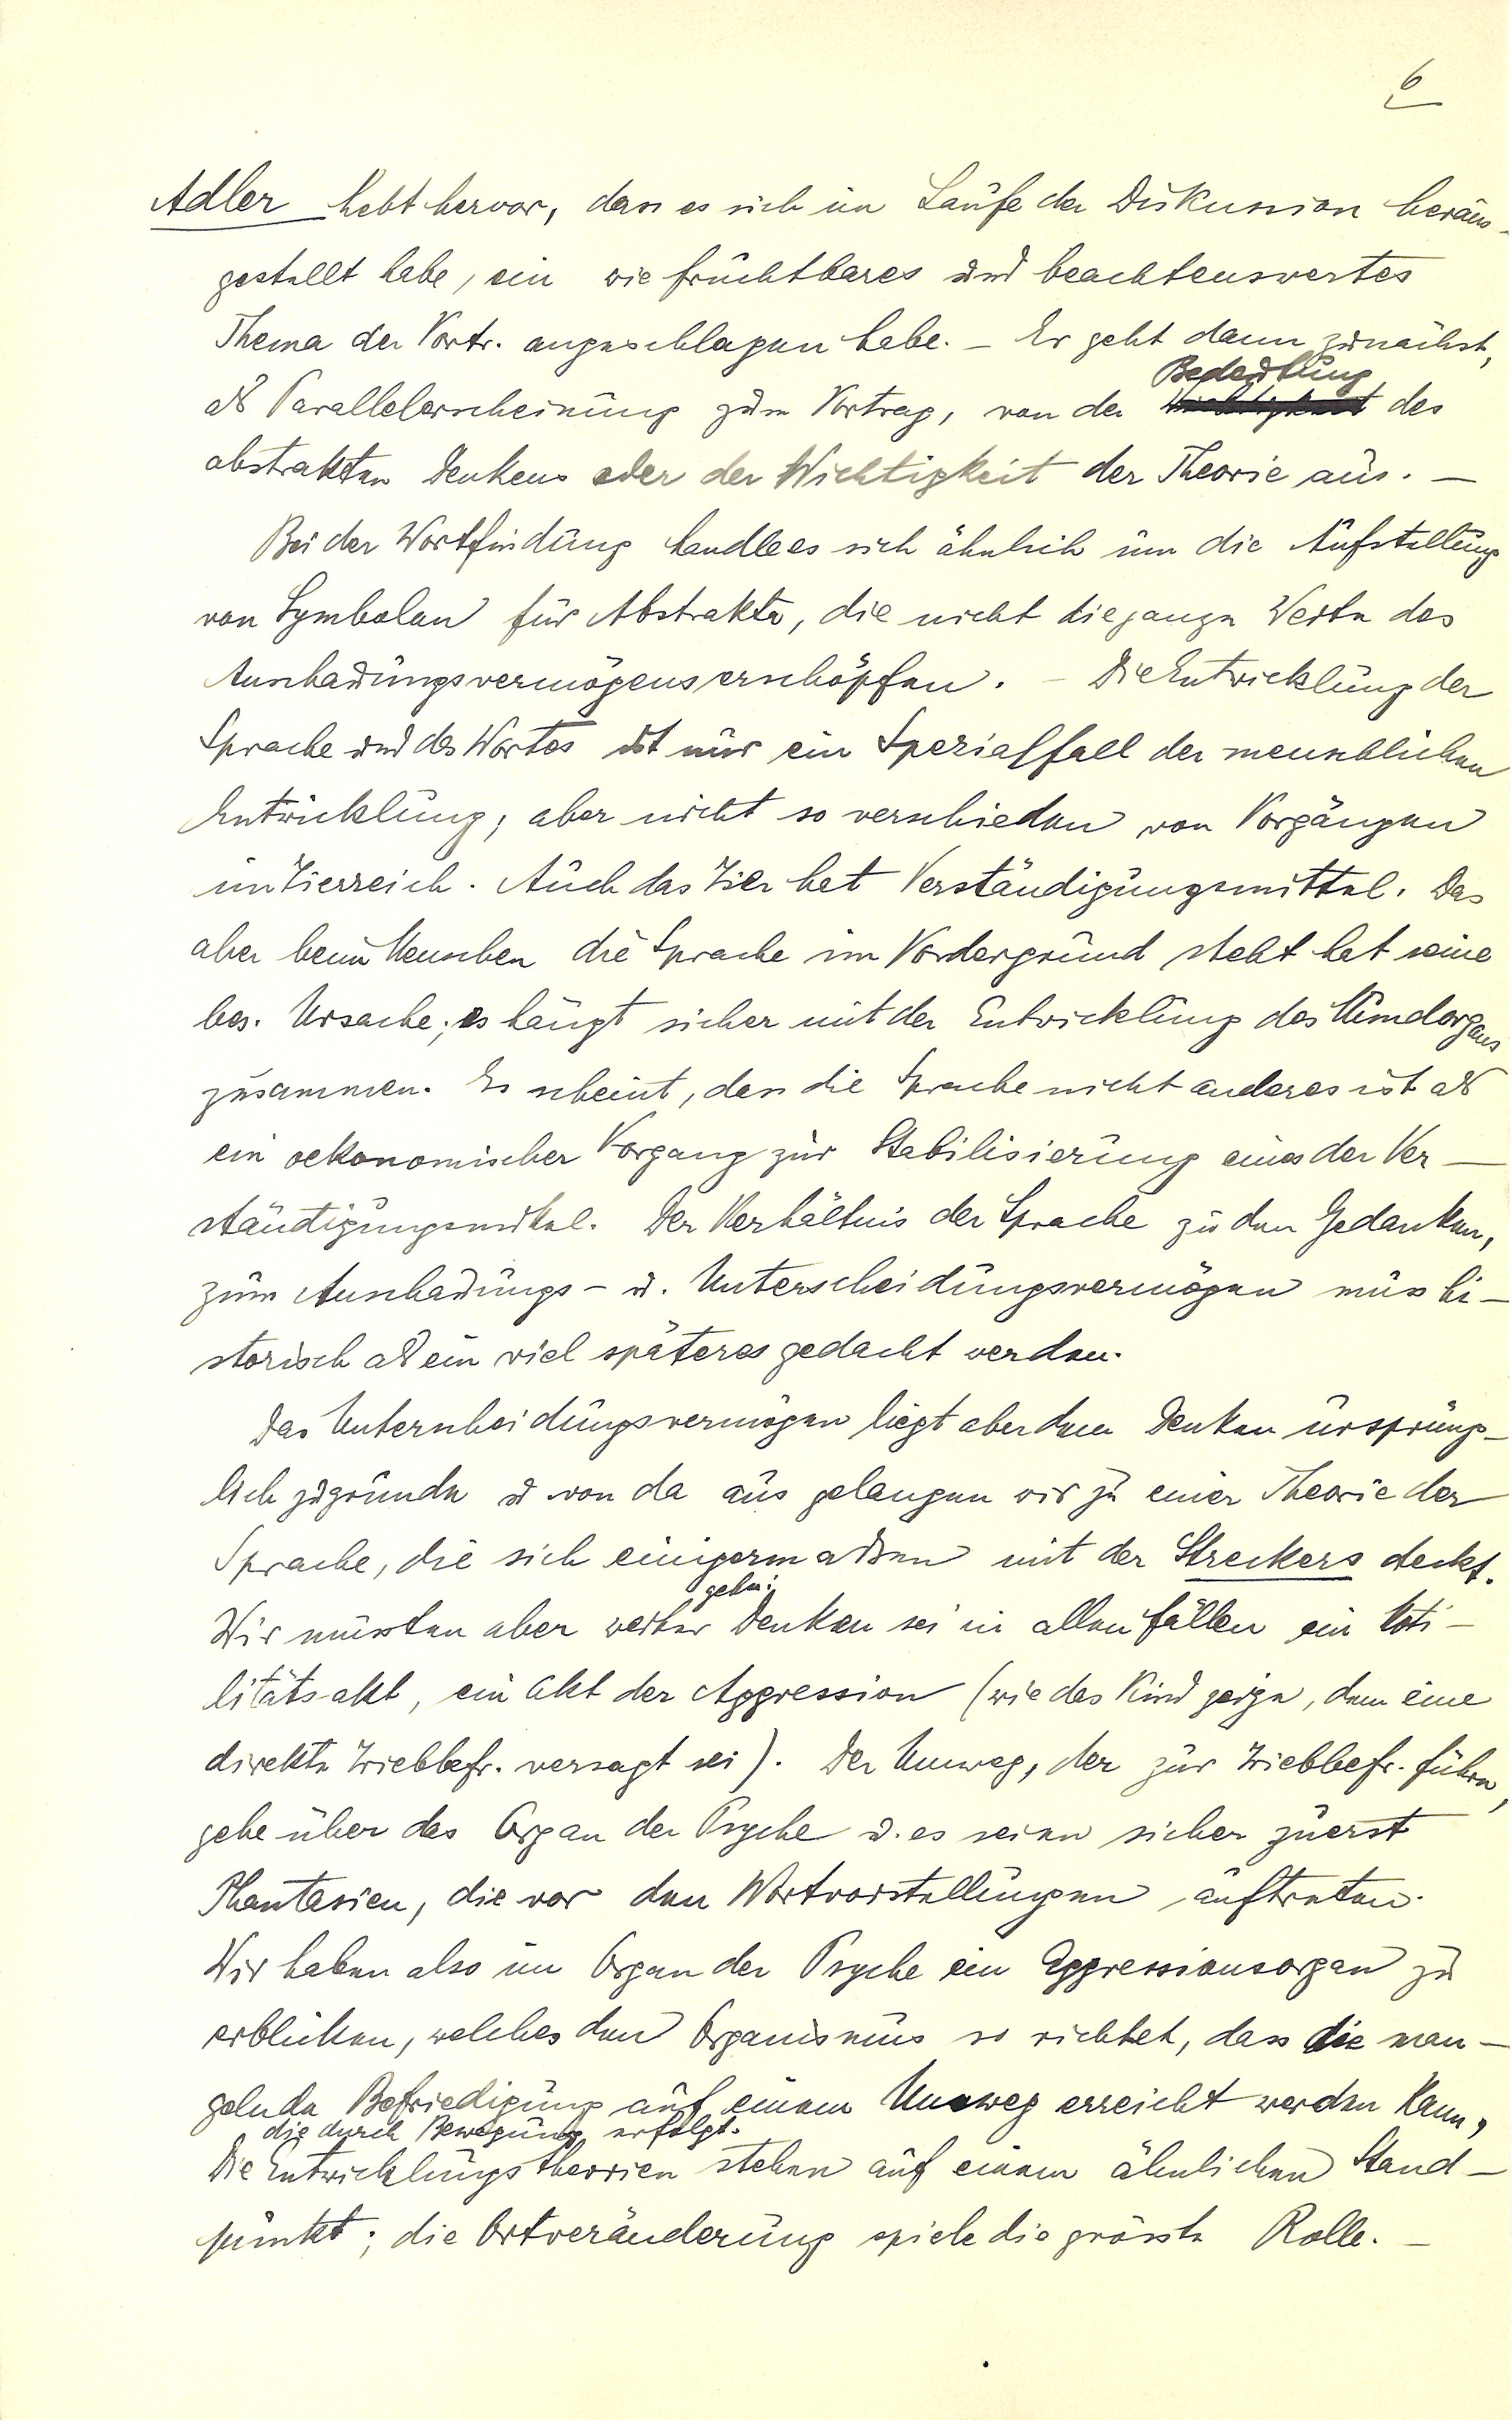 6
Adler hebt hervor, dass es sich im Laufe der Diskussion heraus-
gestellt habe, ein wie fruchtbares und beachtenswertes
Thema der Vortr. angeschlagen habe. – Er geht dann zunächst,
als Parallelerscheinung zum Vortrag, von der Bedeutung des
abstrakten Denkens oder der Wichtigkeit der Theorie aus. –
Bei der Wortfindung handle es sich ähnlich um die Aufstellung
von Symbolen für Abstrakta, die nicht die ganze Weite des
Anschauungsvermögens erschöpfen. – Die Entwicklung der
Sprache und des Wortes ist nur ein Spezialfall der menschlichen
Entwicklung, aber nicht so verschieden von Vorgängen
im Tierreich. Auch das Tier hat Verständigungsmittel. Das
aber beim Menschen die Sprache im Vordergrund steht hat seine
bes. Ursache; es hängt sicher mit der Entwicklung des Mundorgans
zusammen. Es scheint, dass die Sprache nicht anderes ist als
ein oekonomischer Vorgang zur Stabilisierung eines der Ver-
ständigungsmittel. Der Verhältnis der Sprache zu den Gedanken,
zum Anschauungs- u. Unterscheidungsvermögen muss hi-
storisch als ein viel späteres gedacht werden.
Das Unterscheidungsvermögen liegt aber dem Denken ursprüng-
lich zugrunde u von da aus gelangen wir zu einer Theorie der
Sprache, die sich einigermassen mit der Streckers deckt.
Wir müssten aber weiter gehen: Denken sei in allen Fällen ein Moti-
litätsakt, ein Akt der Aggression (wie das Kind zeige, dem eine
direkte Triebbefr. versagt sei). Der Umweg, der zur Triebbefr. führe,
gehe über das Organ der Psyche u. es seien sicher zuerst
Phantasien, die vor den Wortvorstellungen auftreten.
Wir haben also im Organ der Psyche ein Aggressionsorgan zu
erblicken, welches den Organismus so richtet, dass die man-
gelnde Befriedigung auf einem Umweg erreicht werden kann,
die durch Bewegung erfolgt.
Die Entwicklungstheorien stehen auf einem ähnlichen Stand-
punkt; die Ortveränderung spiele die grösste Rolle. –